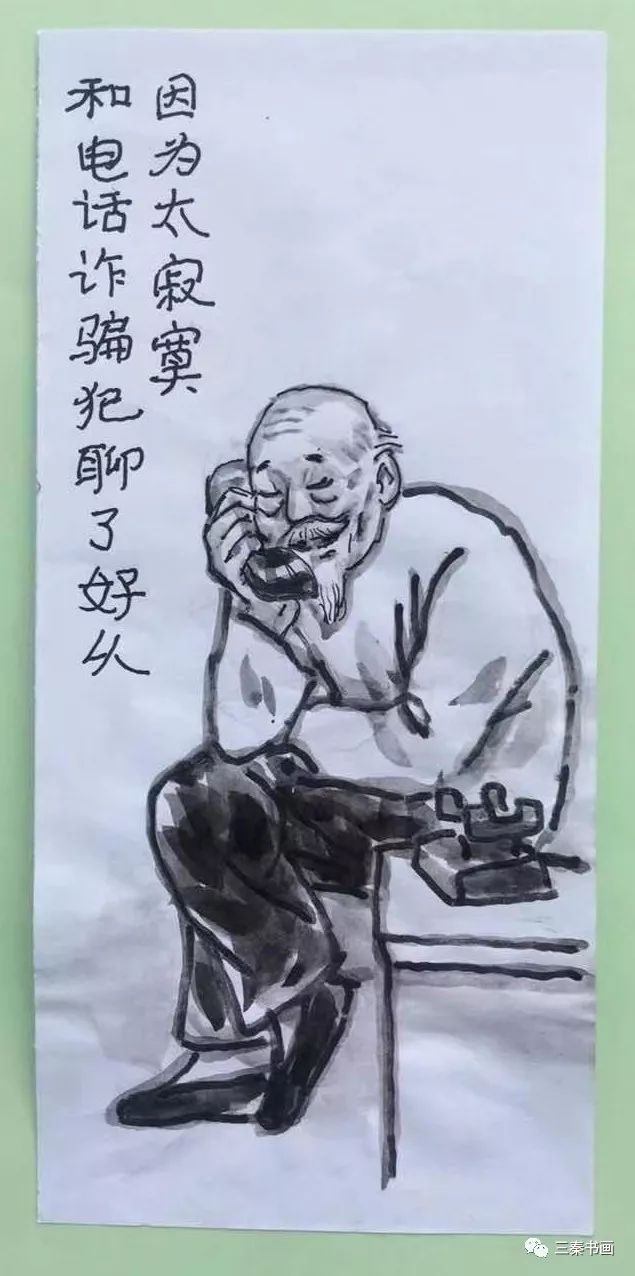 因为太寂寞
和电话诈骗犯聊了好久
三秦书画